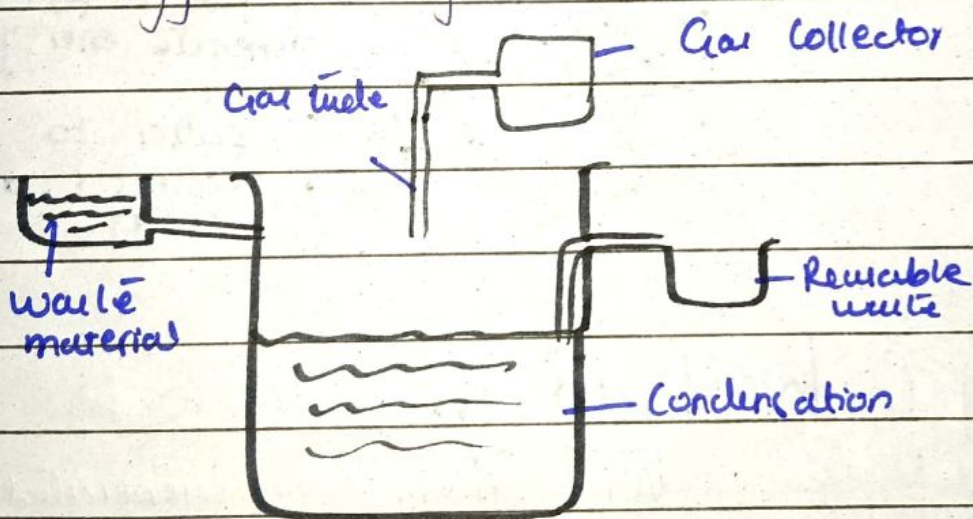 Gas Collector
Gas tube
waste
material
Reusable
waste
Condensation